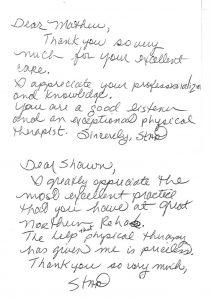 Dear Mathew,
Thank you so very
much for your excellent
care.
I appreciate your professionalism
and knowledge.
You are a good listener
and an exceptional physical
therapist. Sincerely,
Dear Shawn,
I greatly appreciate the
most excellent practice
that you have at Great
Northern Rehab.
The help that physical therapy
has given me is priceless.
Thank you so very much,